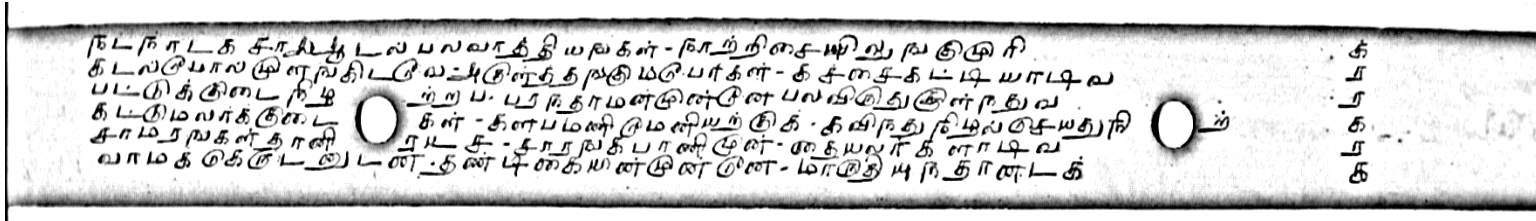 நடநாடக சாலை பாடல பலவாத்தியஙகள் - நாற்றிசையிலு ஙகுமுரி க்
கடலபோல முளஙகிடவே - அகுள்த்தஙகும பேர்கள் - கச்சை கட்டியாடிவ ர
பட்டுக்குடை நிழ ற்றுப. பரநதாமன்முன்னே பலவிருதுகுள்நதுவ ர
கட்டுமலர்க்குடை கள் - களபமணி மேனியற்குக் - கவிநது நிழலசெயதுநி ற் க
சாமரஙகள் தானி ரயச - சாரஙகபாணிமுன் - தையலர்களாடிவ ர
வாமக குக்குடனுடன் - தண்டிகையின்முன்னே - மாருதியுநதானடக் க